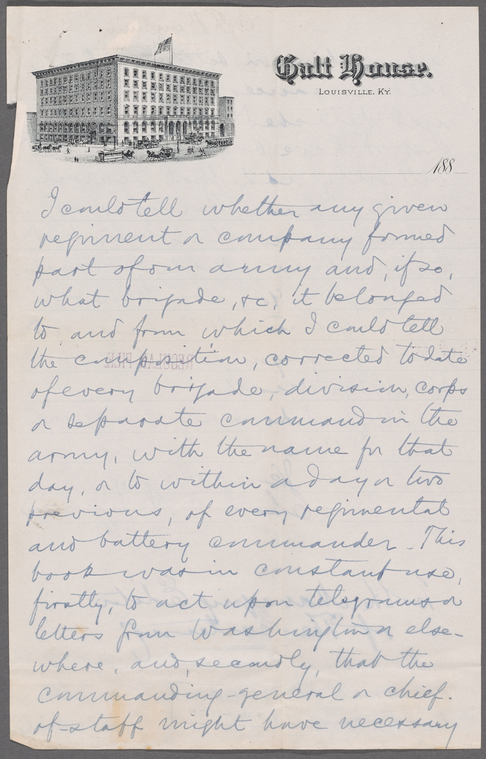 Galt House.
LOUISVILLE, KY.
188
I could tell whether any given
regiment or company formed
part of our army and, if so,
what brigade, &c, it belonged
to, and from which I could tell
the composition, corrected to date
of every brigade, division, corps
or separate command in the
army, with the name for that
day, or to within a day or two
previous, of every regimental
and battery commander. This
book was in constant use,
firstly, to act upon telegrams or
letters from Washington or else-
where, and, secondly, that the
commanding-general or chief-
of-staff might have necessary